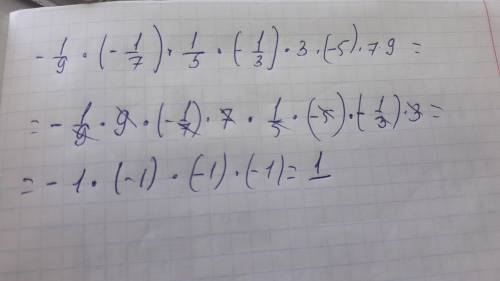 - 1/9 · (- 1/7) · 1/5 · (- 1/3) · 3 · (-5) · 7 9 =
= - 1/9 · 9 · (- 1/7) · 7 · 1/5 · (-5) · (- 1/3) · 3 =
= - 1 · (-1) · (-1) · (-1) = 1